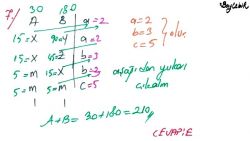 7/ 30 180
A B | a=2
15=X 90=Y | a=2
15=X 45=Z | b=3
5=m 15=X | b=3
5=m 5=m | c=5
1 1
a=2
b=3
c=5
olur
aşağıdan yukarı
çıkalım
A+B= 30+180=210
CEVAP:E